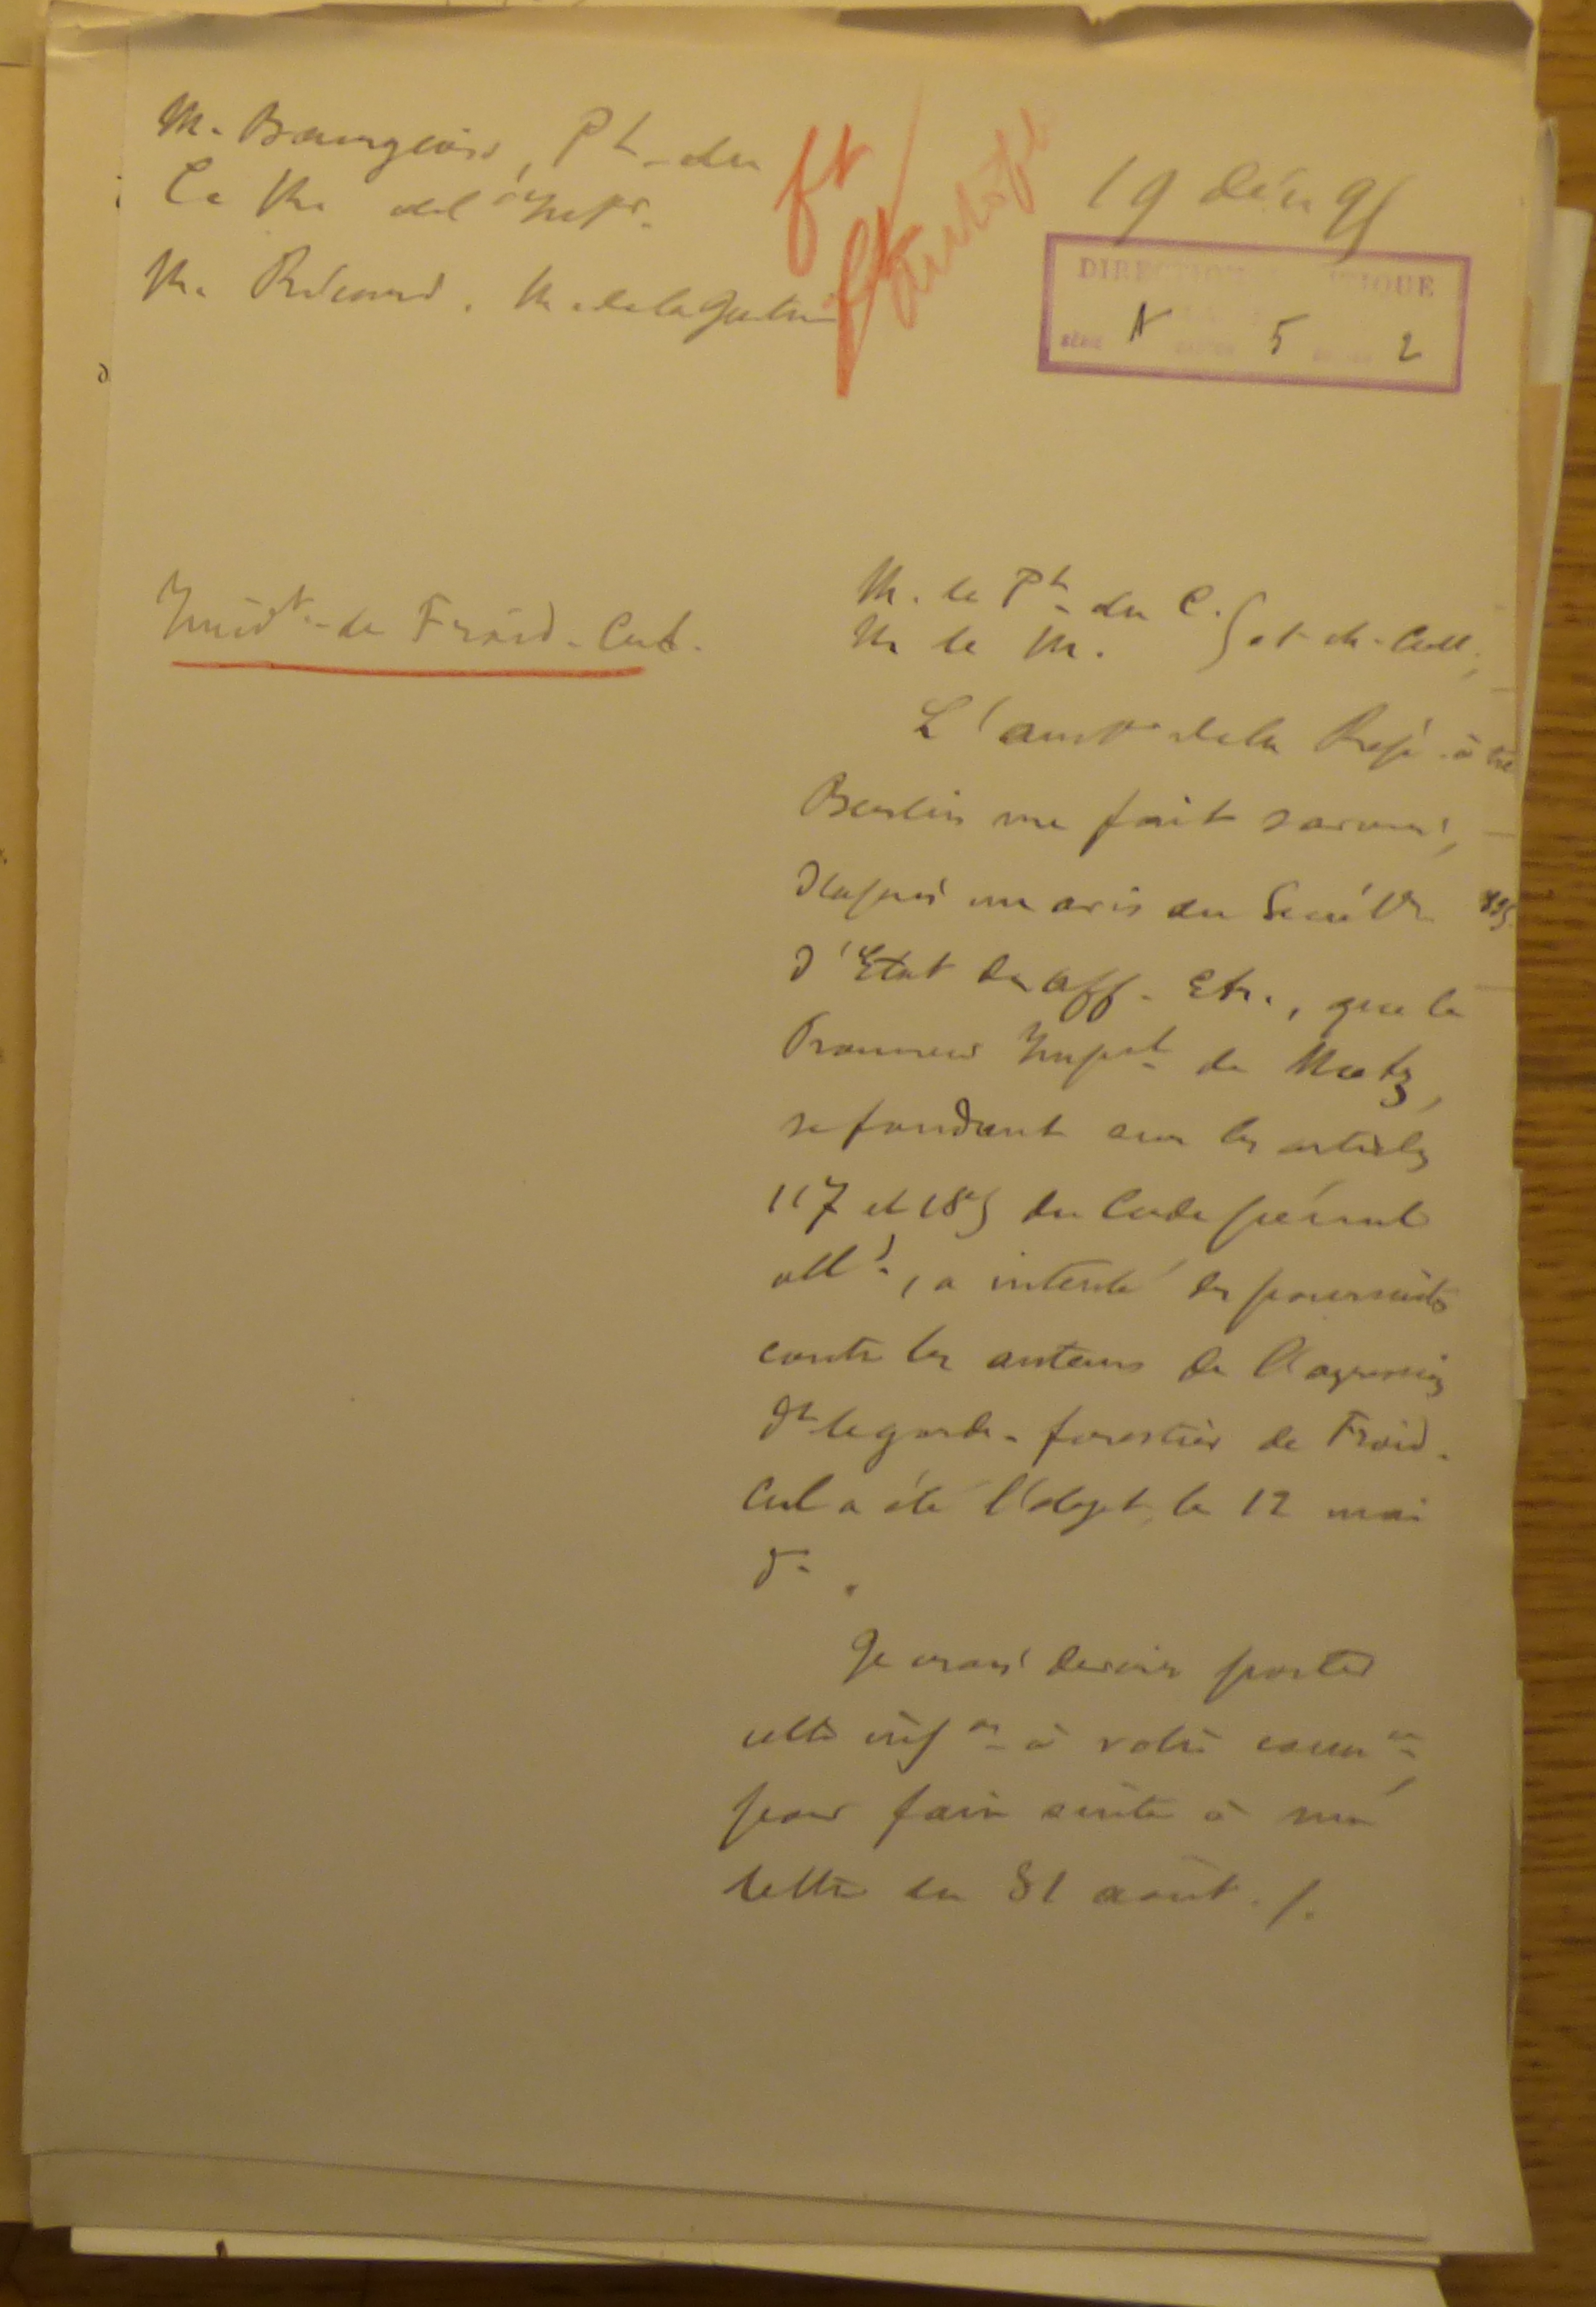 M. Bourgeois, Pt du
C. M. de l'Intr.
M. Ricard. M. de la Justice
ft
ft
19 Déc. 95
DIRECTION POLITIQUE
SÉRIE N CARTON 5 DOSSIER 2
Incidt de Froid-Cul.
M. le Pt du C. } et ch. Coll,
M le M.
L'ambr de la Rép. à
Berlin me fait savoir,
d'après un avis du Secrétre
d'Etat des Aff. Etr., que le
Procureur Impal de Metz,
se fondant sur les articles
117 et 185 du Code pénal
alld, a intenté des poursuites
contre les auteurs de l'agression
dt le garde-forestier de Froid-
Cul a été l'objet le 12 mai
dr.
Je crois devoir porter
cette infon à votre connce,
pour faire suite à ma
lettre du 31 août./.